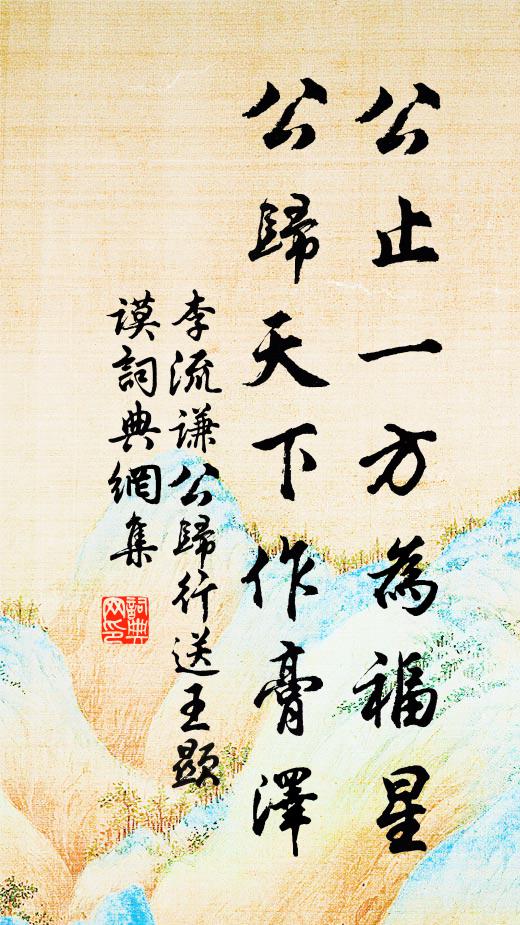 公止一方為福星
公歸天下作膏澤
李流谦公歸行送王顯
谟詞典網集
詞典网印